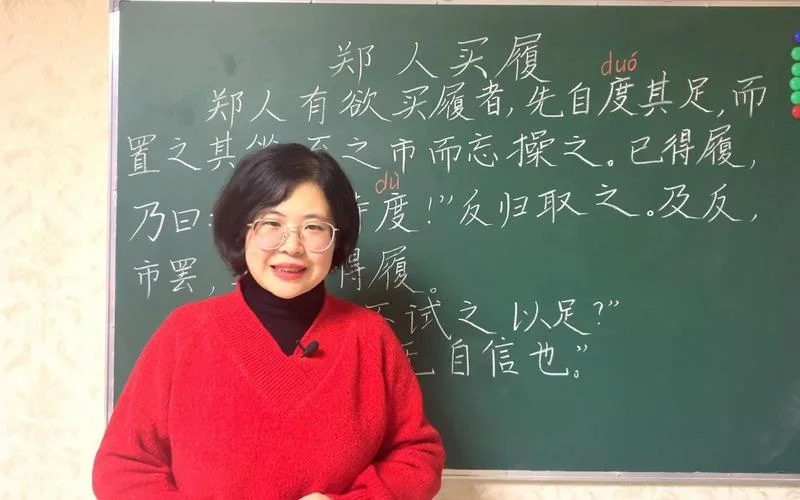 郑人买履
duó
郑人有欲买履者,先自度其足,而
置之其 之市而忘操之。已得履,
dù
乃曰: 度!”反归取之。及反,
市罢, 得履。
试之以足?”
自信也。”